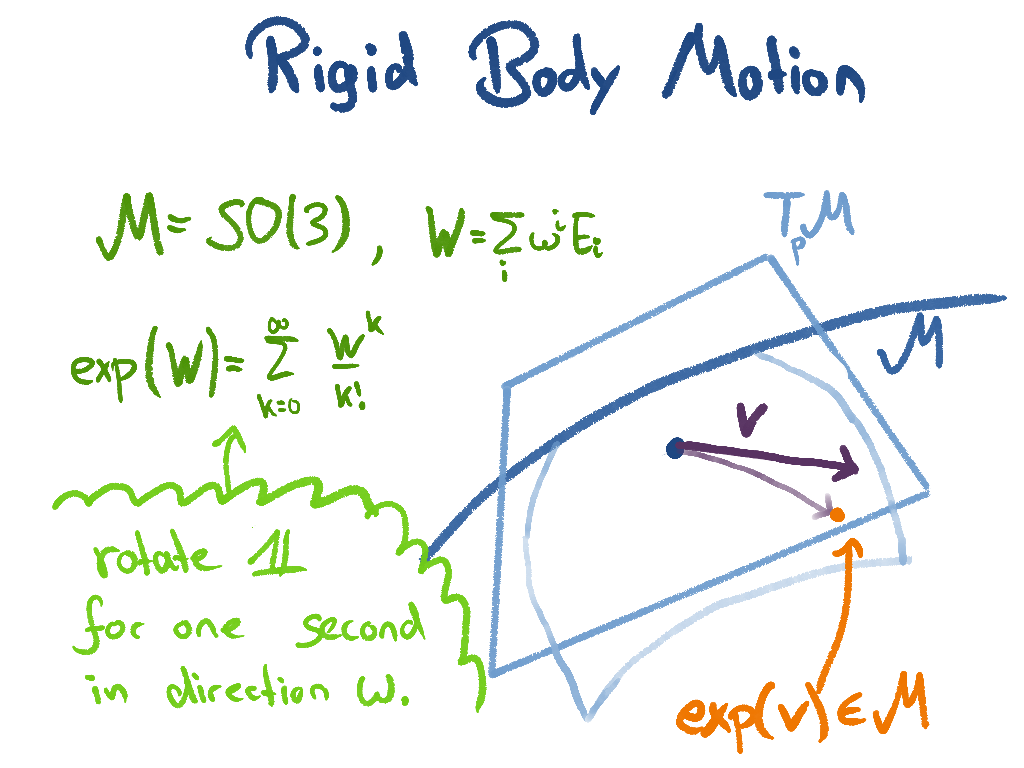 Rigid Body Motion
M = SO(3), W = ∑_i ω^i E_i
T_p M
M
exp(W) = ∑_{k=0}^{∞} W^k / k!
v
rotate 𝟙
for one second
in direction ω.
exp(v) ∈ M